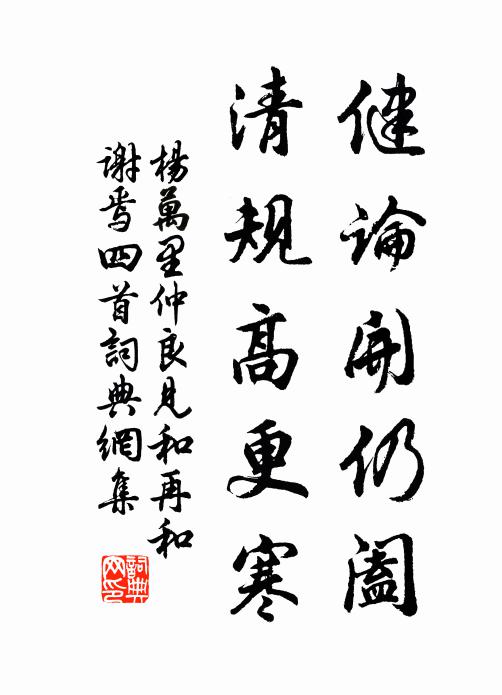 健論開仍闔
清規高更寒
楊萬里仲良見和再和
謝焉四首詞典網集
詞典网印